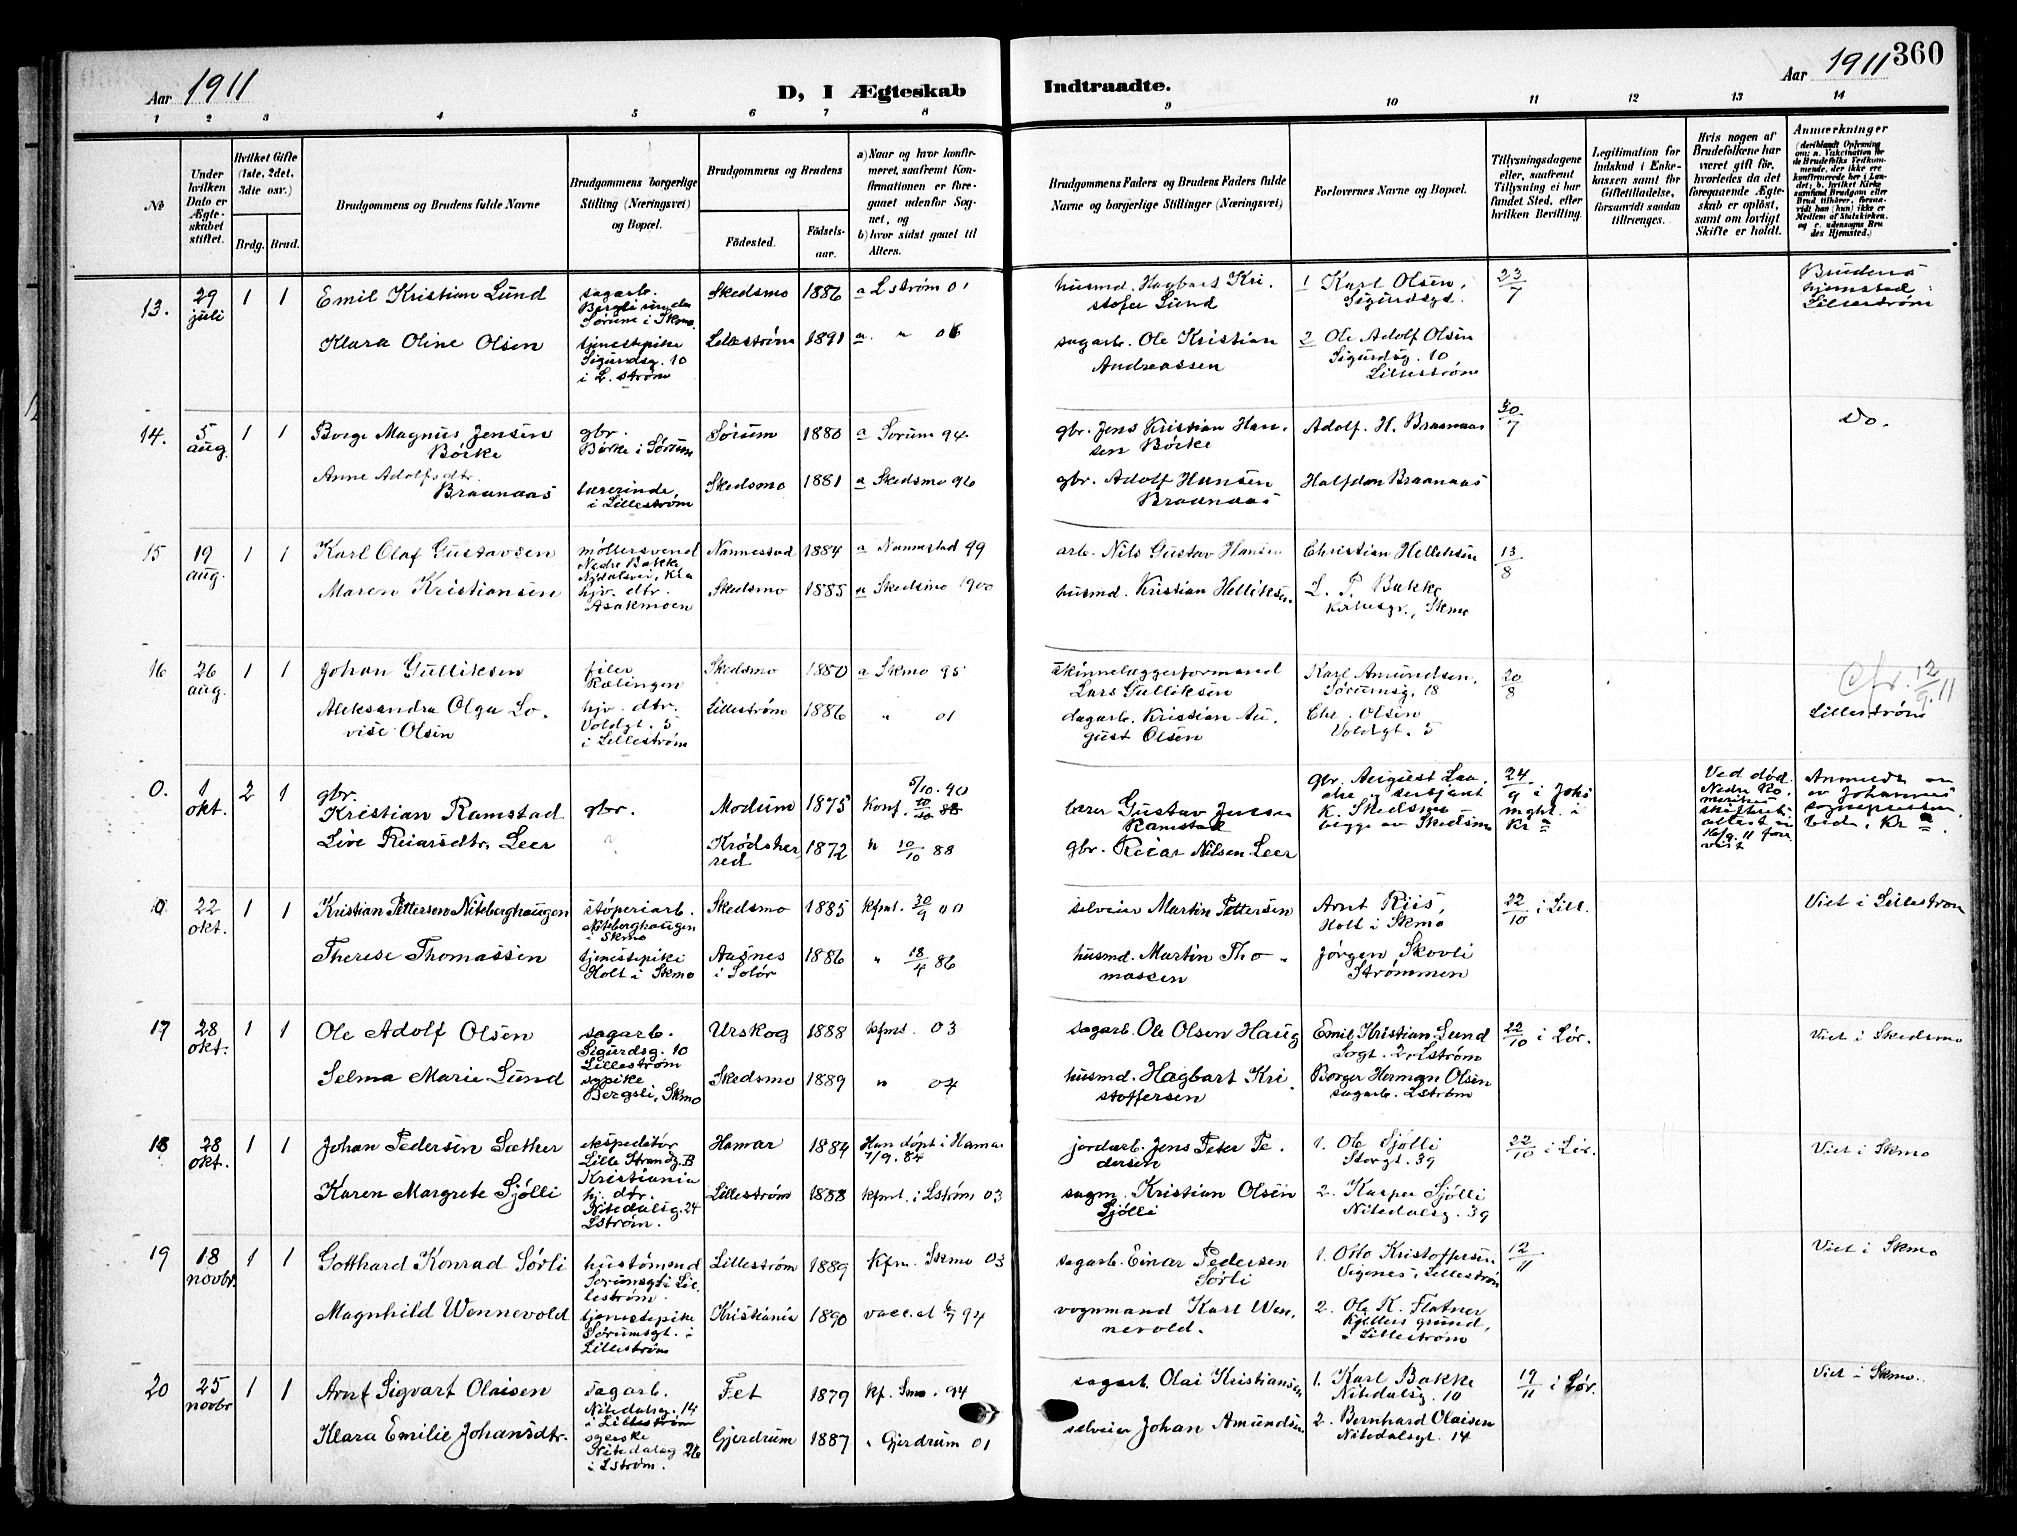 Aar 1911
D, I Ægteskab Indtraadte.
Aar 1911 360
1 2 3 4 5 6 7 8 9 10 11 12 13 14
No
Under hvilken Dato er Ægteskabet stiftet.
Hvilket Gifte (1ste, 2det, 3dte osv.)
Brdg. Brud.
Brudgommens og Brudens fulde Navne
Brudgommens borgerlige Stilling (Næringsvei) og Bopæl.
Brudgommens og Brudens
Födested. Födselsaar.
a) Naar og hvor konfirmeret, saafremt Konfirmationen er foregaaet udenfor Sognet, og
b) hvor sidst gaaet til Alters.
Brudgommens Faders og Brudens Faders fulde Navne og borgerlige Stillinger (Næringsvei)
Forlovernes Navne og Bopæl.
Tillysningsdagene eller, saafremt Tillysning ei har fundet Sted, efter hvilken Bevilling.
Legitimation for Indskud i Enkekassen samt for Giftetilladelse, forsaavidt saadan tiltrenges.
Hvis nogen af Brudefolkene har været gift för, hvorledes da det foregaaende Ægteskab er oplöst, samt om lovligt Skifte er holdt.
Anmærkninger
13. 29 juli 1 1
Emil Kristian Lund
sagarb.
Sörum i Skmo.
Skedsmo 1886 a Lström 01
husmd. Hagbart Kristofer Lund
1 Karl Olsen, Sigurdsgt.
23/7
Brudens hjemsted: Lilleström
Klara Oline Olsen
tjenestepike Sigurdsg. 10 i L.ström
Lilleström 1891 a. " 06
sagarb. Ole Kristian Andreassen
2 Ole Adolf Olsen Sigurdsg. 10, Lilleström
14. 5 aug. 1 1
Borge Magnus Jensen Börke
gbr. Börke i Sörum
Sörum 1880 a Sörum 94
gbr. Jens Kristian Hansen Börke
Adolf. H. Braanaas
30/7
Do.
Anne Adolfsdtr. Braanaas
lærerinde i Lilleström
Skedsmo 1881 a Skedsmo 96
gbr. Adolf Hansen Braanaas
Halfdan Braanaas
15 19 aug. 1 1
Karl Olaf Gustavsen
möllersvend Nedre Bakke
Nannestad 1884 a Nannestad 99
arb. Nils Gustav Hansen
Christian Helleksen
13/8
Maren Kristiansen
hjv. dtr. Asakmoen
Skedsmo 1885 a Skedsmo 1900
husmd. Kristian Helliksen
L. P. Bakke
16 26 aug. 1 1
Johan Gulliksen
filer Rælingen
Skedsmo 1880 a Skmo 95
Skinnelæggerformand Lars Gulliksen
Karl Amundsen, Sörumsg. 18
20/8
Cfr. 12/9.11
Aleksandra Olga Lovise Olsen
hjv. dtr. Voldgt. 5 i Lilleström
Lilleström 1886 " 01
dagarb. Kristian August Olsen
Chr. Olsen Voldgt. 5
Lilleström
0. 1 okt. 2 1
gbr. Kristian Ramstad
gbr.
Modum 1875 Konf. 5/10.90
lærer Gustav Jensen Ramstad
24/9 i Joh's
Live Reiarsdtr. Leer
Krödsherred 1872 " 10/10 88
gbr. Reiar Nilsen Leer
0 22 okt. 1 1
Kristian Pettersen Niteberghaugen
stöperiarb. Niteberghaugen i Skmo
Skedsmo 1885 kfmt. 30/9 00
selveier Martin Pettersen
Arnt Riis, Holt i Skmo
22/10 i Lill.
Viet i Lilleström
Therese Thomassen
tjenestepike Holt i Skmo
Aasnes i Solör 1886 " 18/4 86
husmd. Martin Thomassen
Jörgen Skovli Strömmen
17 28 okt. 1 1
Ole Adolf Olsen
sagarb. Sigurdsg. 10 Lilleström
Urskog 1888 kfmt. 03
sagarb. Ole Olsen Haug
Emil Kristian Lund
22/10 i Lör.
Viet i Skedsmo
Selma Marie Lund
Bergsli, Skmo
Skedsmo 1889 " 04
husmd. Hagbart Kristoffersen
Borger Herman Olsen sagarb. Lström
18 28 okt. 1 1
Johan Pedersen Sæther
ekspeditör Lille Strandg. B Kristiania
Hamar 1884 Han döpt i Hamar 7/9.84
jordarb. Jens Peter Pedersen
1. Ole Sjölli Storgt. 39
22/10 i Lör.
Viet i Skmo
Karen Margrete Sjölli
hj. dtr. Nitedalsg. 24 Lström.
Lilleström 1888 kfmt. i Lström 03
sagm. Kristian Olsen Sjölli
2. Kasper Sjölli Nitedalsg. 39
19 18 novbr. 1 1
Gotthard Konrad Sörli
hustömmd Sörumsgt i Lilleström.
Lilleström 1889 Kfm. Skmo 03
sagarb. Einar Pedersen Sörli
1. Otto Kristoffersen Vigenes, Lilleström
12/11
Viet i Skmo
Magnhild Wennevold
tjenestepike Sörumsgt. i Lilleström
Kristiania 1890 vacc. at 6/7 94
vognmand Karl Wennevold.
2. Ole K. Flatner Kjellers grund, i Lilleström
20 25 novbr 1 1
Arnt Sigvart Olaisen
sagarb. Nitedalsg. 14 i Lilleström
Fet 1879 kf. Smo. 94
sagarb. Olai Kristiansen
1. Karl Bakke Nitedalsg. 10
19/11 i Lör.
Viet i Skmo.
Klara Emilie Johansdtr.
syerske Nitedalsg 26 i Lström.
Gjerdrum 1887 " Gjerdrum 01
selveier Johan Amundsen
2. Bernhard Olaisen Nitedalsgt. 14